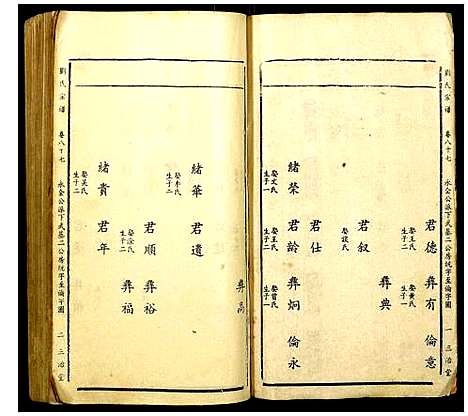 劉氏宗譜
卷八十七
永金公派下武基二公房統字至倫字圖
一
三治堂
君德
娶王氏
生子二
彝有
娶黃氏
生子一
倫意
彝典
君叙
娶段氏
君仕
緒榮
娶文氏
生子一
君齡
娶王氏
生子二
彝炯
娶曾氏
生子一
倫永
彝高
緒華
娶李氏
生子二
君遺
君順
娶涂氏
生子二
彝裕
緒貴
娶吴氏
生子二
君年
彝福
劉氏宗譜
卷八十七
永金公派下武基二公房統字至倫字圖
二
三治堂